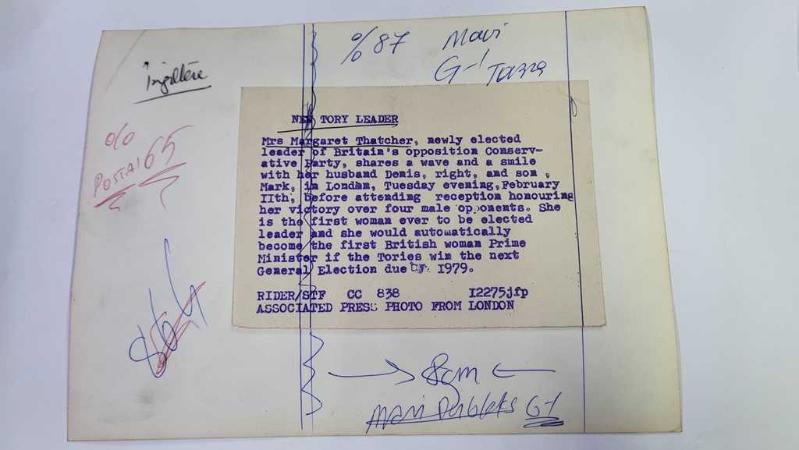 % 87 Mavi
G-1
İngiltere
% 65
POSTA
NEW TORY LEADER
Mrs Margaret Thatcher, newly elected
leader of Britain's opposition Conserv-
ative Party, shares a wave and a smile
with her husband Denis, right, and son ,
Mark, in London, Tuesday evening,February
IIth, before attending reception honouring
her victory over four male opponents. She
is the first woman ever to be elected
leader and she would automatically
become the first British woman Prime
Minister if the Tories win the next
General Election due 1979.
RIDER/STF CC 838 I2275jfp
ASSOCIATED PRESS PHOTO FROM LONDON
864
8cm
Mavi G1